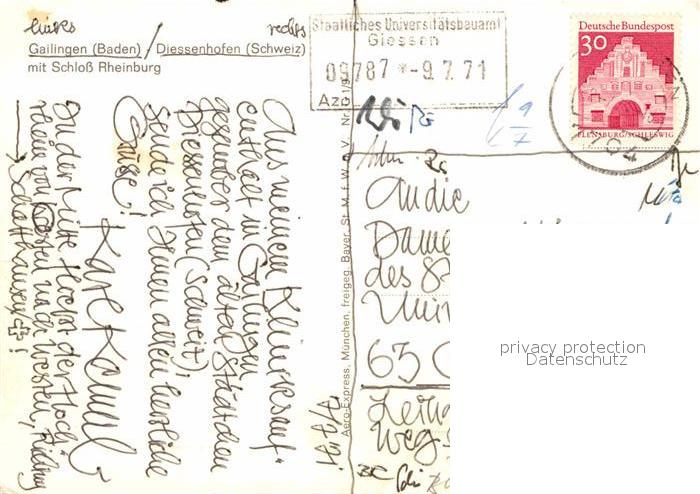 links rechts
Gailingen (Baden) / Diessenhofen (Schweiz)
mit Schloß Rheinburg
Staatliches Universitätsbauamt
Giessen
09787 *-9.7.71
Deutsche Bundespost
30
FLENSBURG/SCHLESWIG
Aus meinem Kliniksauf-
enthalt in Gailingen
gegenüber dem alten Städtchen
Diessenhofen (Schweiz)
sende ich Ihnen allen herzliche
Grüße!
Karl
In der Mitte fließt der Hoch-
rhein von Osten nach Westen, Richtung
→ Schaffhausen!
7/7/71
Aero-Express, München, freigeg. Bayer. St. M. f. W. u. V. Nr. G
An die
Dame
des S
Uni
63
Leih
Weg
privacy protection
Datenschutz